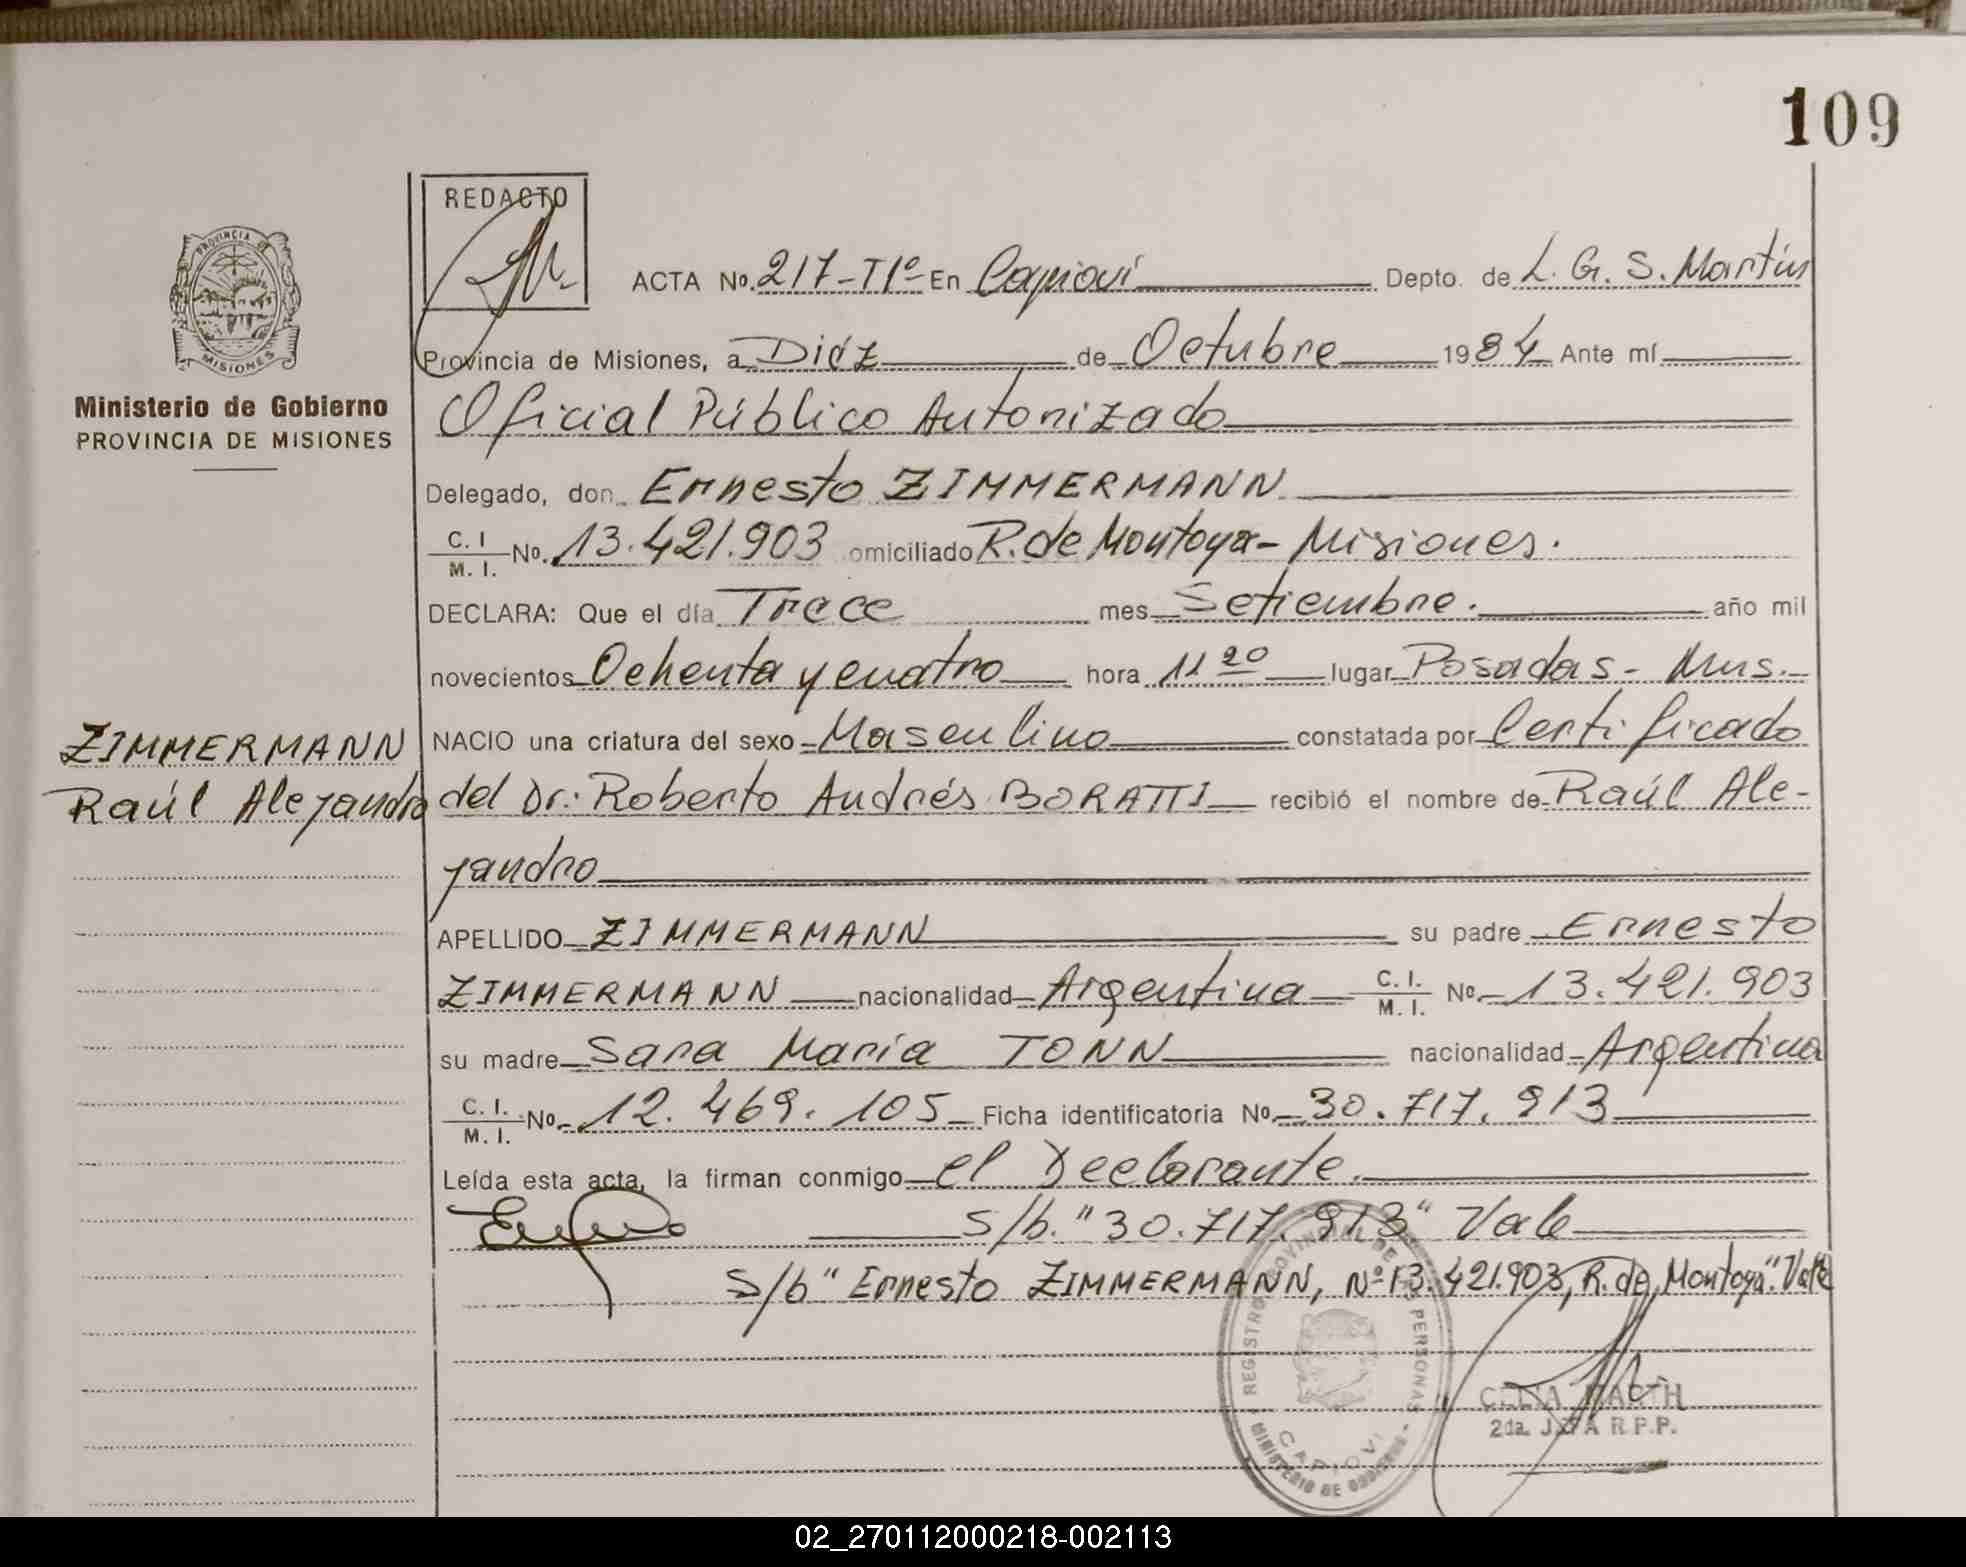 109
REDACTO
ACTA No. 217-T1º En Capiovi Depto. de L. G. S. Martín
Provincia de Misiones, a Diéz de Octubre 1984 Ante mí
Oficial Público Autorizado
Delegado, don Ernesto ZIMMERMANN
C. I / M. I. No. 13.421.903 omiciliado R. de Montoya - Misiones.
DECLARA: Que el día Trece mes Setiembre. año mil
novecientos Ochenta y cuatro hora 11 20 lugar Posadas - Mns.
NACIO una criatura del sexo Masculino constatada por Certificado
del Dr.: Roberto Andrés BORATTI recibió el nombre de Raúl Ale-
jandro
APELLIDO ZIMMERMANN su padre Ernesto
ZIMMERMANN nacionalidad Argentina C. I. / M. I. No. 13.421.903
su madre Sara María TONN nacionalidad Argentina
C. I. / M. I. No. 12.469.105 Ficha identificatoria No. 30.717.913
Leída esta acta, la firman conmigo el Declarante.
s/b. "30.717.913" Vale
s/b "Ernesto ZIMMERMANN, Nº 13.421.903, R. de Montoya". Vale
PROVINCIA DE
MISIONES
Ministerio de Gobierno
PROVINCIA DE MISIONES
ZIMMERMANN
Raúl Alejandro
REGISTRO PROVINCIAL DE LAS PERSONAS
CAPIOVI
MINISTERIO DE GOBIERNO
CELIA BARTH
2da. JEFA R.P.P.
02_270112000218-002113